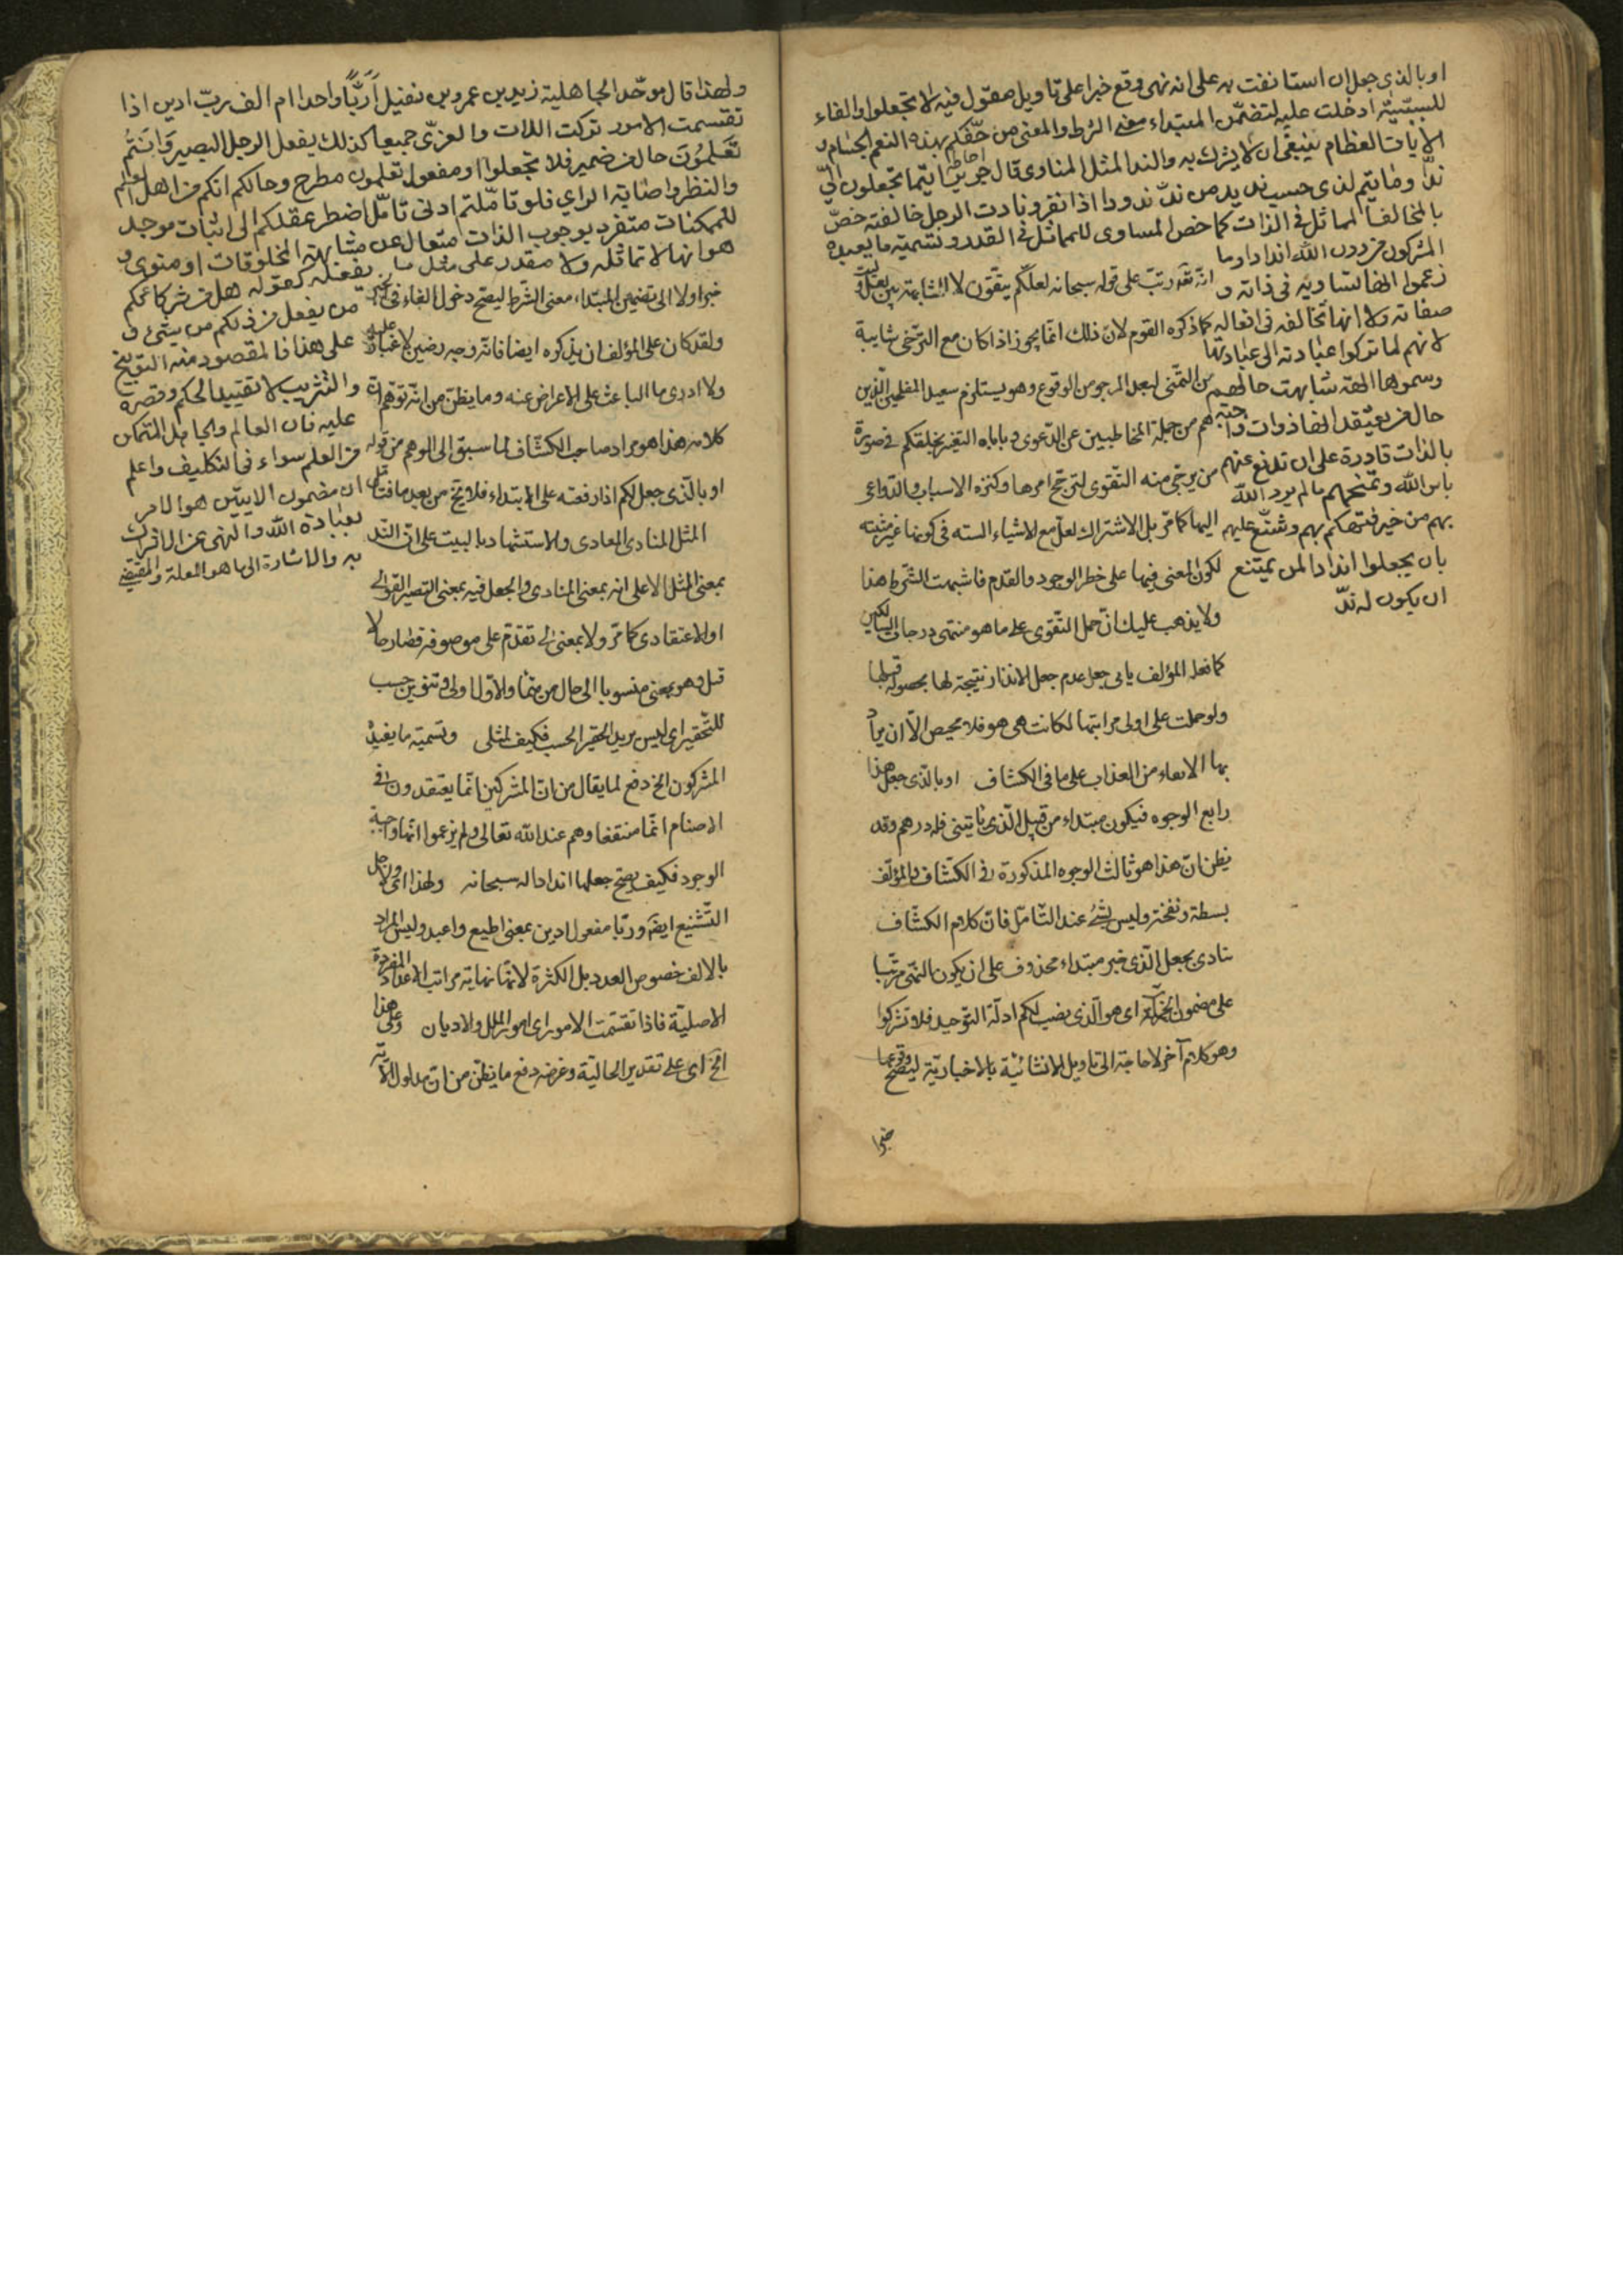 او بالذي جعل ان استانفت به على انه نهى وقع خبرا على تاويل مقول فيه لا تجعلوا والفاء
للسببية ادخلت عليه لتضمن المبتداء معنى الشرط والمعنى من حفكم بهذه النعم الجسام و
الايات العظام ينبغى ان لا يشرك به والند المثل المناوى قال جرير اتيما تجعلون الىّ
ندّا وما تيم لذى حسب نديد من ندّ ندودا اذا نفر وناددت الرجل خالفته خصّ
بالمخالف المماثل فى الذات كما خص المساوى للمماثل فى القدر وتسمية ما يعبده
المشركون من دون الله اندادا وما
زعموا انها تساويه فى ذاته و
صفاته ولا انها تخالفه فى افعاله
لانهم لما تركوا عبادته الى عبادتها
وسموها الهة شابهت حالهم
حال من يعتقد انها ذوات واجبة
بالذات قادرة على ان تدفع عنهم
باس الله وتمنحهم ما لم يرد الله
بهم من خير فتهكم بهم وشنّع عليهم
بان يجعلوا اندادا لمن يمتنع
ان يكون له ندّ
انه رتب على قوله سبحانه لعلكم يتقون لا المشابهة بين لعل و
كما ذكره القوم لان ذلك انما يجوز اذا كان مع الترجى شايبة
من التمنى لبعد المرجو من الوقوع وهو يستلزم
هم من جملة المخاطبين عن الدعوى و يخلقكم فى صورة
من يرتجى منه التقوى لترجح امرها وكثرة الاسباب والدواعى
اليها كما مرّ بل الاشتراك لعل مع الاشياء الستة فى كونها غير مثبتة
لكون المعنى فيها على خطر الوجود والعدم فاشبهت الشرط هذا
ولا يذهب عليك ان حمل التقوى على ما هو منتهى درجات السالكين
كما فعله المؤلف يابى جعل عدم جعل الانداد نتيجة لها بحصوله قبلها
ولو حملت على اولى مراتبها لكانت هى هو فلا محيص الا ان يراد
بها الاتقاء من العذاب على ما فى الكشاف او بالذى جعل هذا
رابع الوجوه فيكون مبتداء من قبيل الذى ياتينى فله درهم وقد
يظن ان هذا هو ثالث الوجوه المذكورة فى الكشاف والمؤلف
بسطه ونقحه وليس بشئ عند التامل فان كلام الكشاف
ينادى بجعل الذى خبر مبتداء محذوف على ان يكون النهى مرتبا
على مضمون الجملة اى هو الذى نصب لكم ادلة التوحيد فلا تشركوا
وهو كلام آخر لا حاجة الى تاويل الانشائية بالاخبارية ليصح وقوعها
خبرا
ولهذا قال موحّد الجاهلية زيد بن عمرو بن نفيل اَرَبًّا واحدا ام الف ربّ ادين اذا
تقسمت الامور تركت اللات والعزّى جميعا كذلك يفعل الرجل البصير وَاَنتُم
تَعلَمُونَ حال من ضمير فلا تجعلوا او مفعول تعلمون مطرح وحالكم انكم من اهل العلم
والنظر واصابة الراي فلو تاملتم ادنى تامّل اضطر عقلكم الى اثبات موجد
للممكنات متفرد بوجوب الذات متعال عن مشابهة المخلوقات او منوى و
هو انها لا تماثله ولا تقدر على مثل ما يفعله كقوله هل من شركائكم
من يفعل من ذلكم من شئ و
على هذا فالمقصود منه التوبيخ
والتثريب لا تقييد الحكم وقصره
عليه فان العالم والجاهل المتمكن
من العلم سواء فى التكليف واعلم
ان مضمون الايتين هو الامر
بعبادة الله والنهى عن الاشراك
به والاشارة الى ما هو العلة والمقتضى
خبرا ولا الى تضمين المبتداء معنى الشرط ليصح دخول الفاء فى خبره
ولقد كان على المؤلف ان يذكره ايضا فانه وجه رصين لا غبار عليه
ولا ادرى ما الباعث على الاعراض عنه وما يظن من انه توهم ان
كلامه هذا هو مراد صاحب الكشاف لما سبق الى الوهم من قوله
او بالذى جعل لكم اذا رفعته على الابتداء فلا يخ من بعد ما فتامل
المثل المناوى المعادى والاستشهاد بالبيت على ان الند
بمعنى المثل لا على انه بمعنى المناوى والجعل فيه بمعنى التصيير القولى
او الاعتقادى كما مرّ ولا بمعنى الى تقدم على موصوفه فصار حالا
قيل وهو بمعنى منسوبا الى حال من تيما والاول اولى وتنوين حسب
للتحقير اى ليس نديدا لحقير الحسب فكيف لمثلى وتسمية ما يعبده
المشركون الخ دفع لما يقال من ان المشركين انما يعتقدون فى
الاصنام انها شفعاؤهم عند الله تعالى ولم يزعموا انها واجبة
الوجود فكيف يصح جعلها اندادا له سبحانه ولهذا اى ولاجل
التشنيع ايضا وربا مفعول ادين بمعنى اطيع واعبد وليس المراد
بالالف خصوص العدد بل الكثرة لانها نهاية مراتب الاعداد المفردة
الاصلية فاذا تقسمت الامور اى امور الملل والاديان وعلى هذا
الخ اى على تقدير الحالية وغرضه دفع ما يظن من ان مدلول الآية